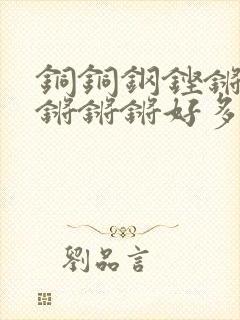 銅銅鋼鏗鏘
鏘鏘鏘好多
劉品言